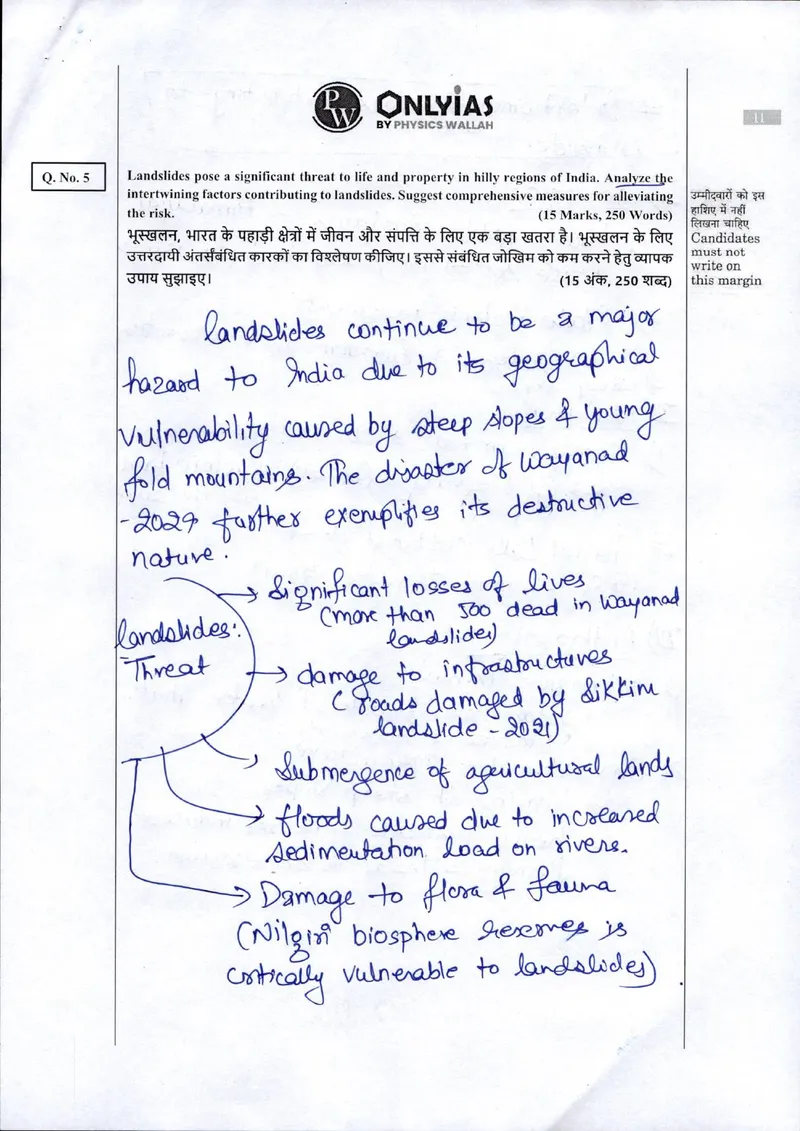 PW
ONLYIAS
BY PHYSICS WALLAH
11
Q. No. 5
Landslides pose a significant threat to life and property in hilly regions of India. Analyze the
intertwining factors contributing to landslides. Suggest comprehensive measures for alleviating
the risk. (15 Marks, 250 Words)
भूस्खलन, भारत के पहाड़ी क्षेत्रों में जीवन और संपत्ति के लिए एक बड़ा खतरा है। भूस्खलन के लिए
उत्तरदायी अंतर्संबंधित कारकों का विश्लेषण कीजिए। इससे संबंधित जोखिम को कम करने हेतु व्यापक
उपाय सुझाइए। (15 अंक, 250 शब्द)
उम्मीदवारों को इस
हाशिए में नहीं
लिखना चाहिए
Candidates
must not
write on
this margin
landslides continue to be a major
hazard to India due to its geographical
vulnerability caused by steep slopes & young
fold mountains. The disaster of Wayanad
-2024 further exemplifies its destructive
nature.
landslides:
Threat
Significant losses of lives
(more than 500 dead in Wayanad
landslides)
damage to infrastructures
(roads damaged by Sikkim
landslide - 2021)
Submergence of agricultural lands
floods caused due to increased
sedimentation load on rivers.
Damage to flora & fauna
(Nilgiri biosphere reserves is
critically vulnerable to landslides)